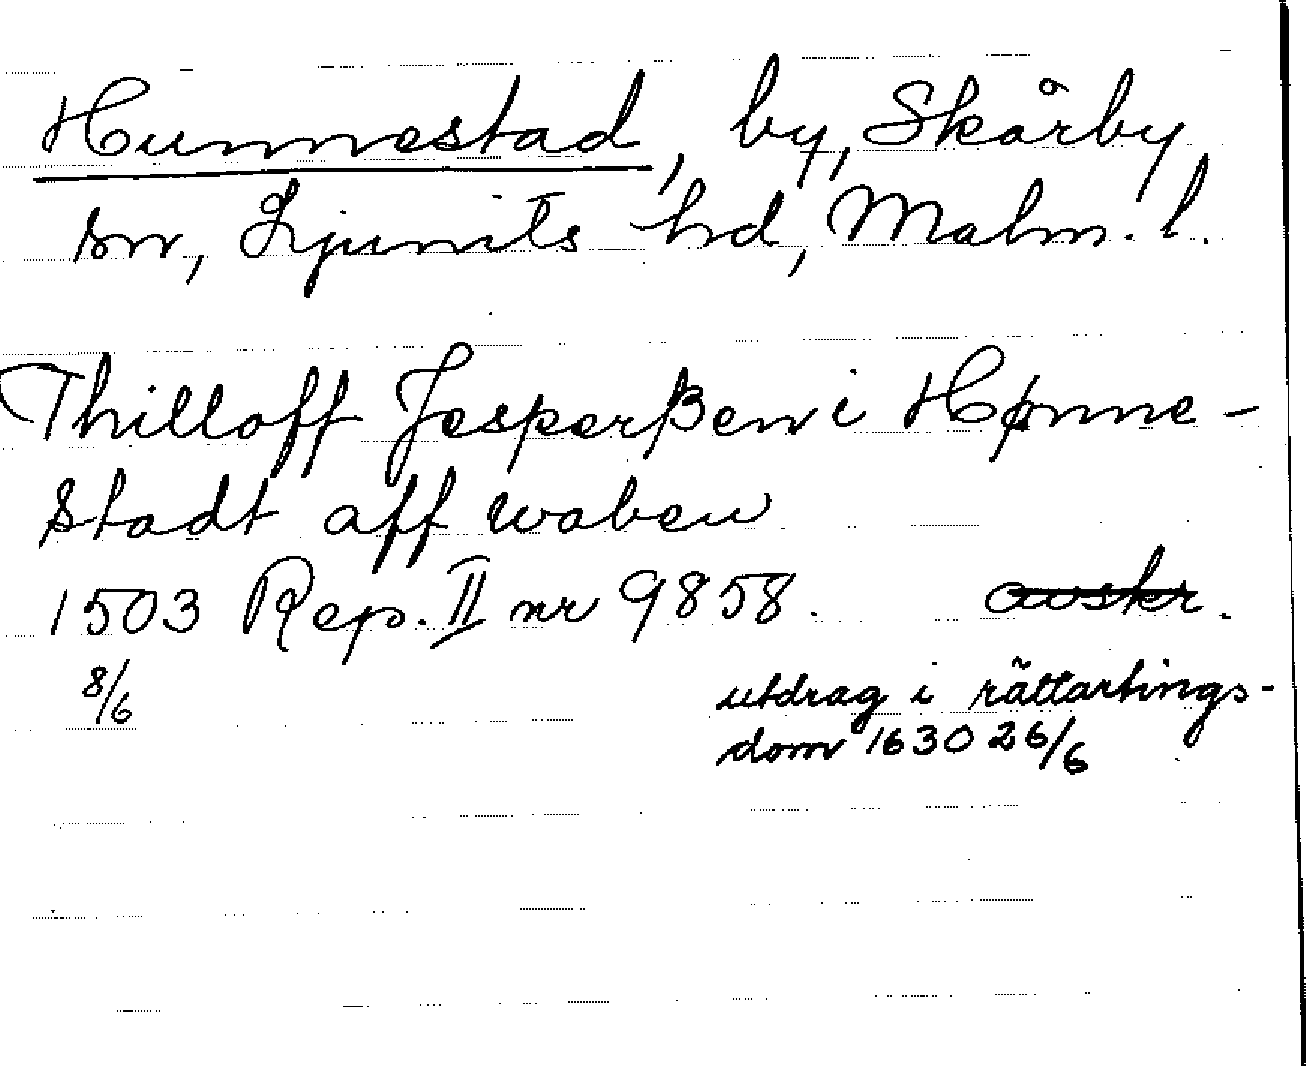 Hunnestad, by, Skårby
sn, Ljunits hd, Malm. l.
Thilloff Jesperßen i Hønne-
stadt aff waben
1503 Rep. II nr 9858. avskr.
8/6 utdrag i rättartings-
dom 1630 26/6